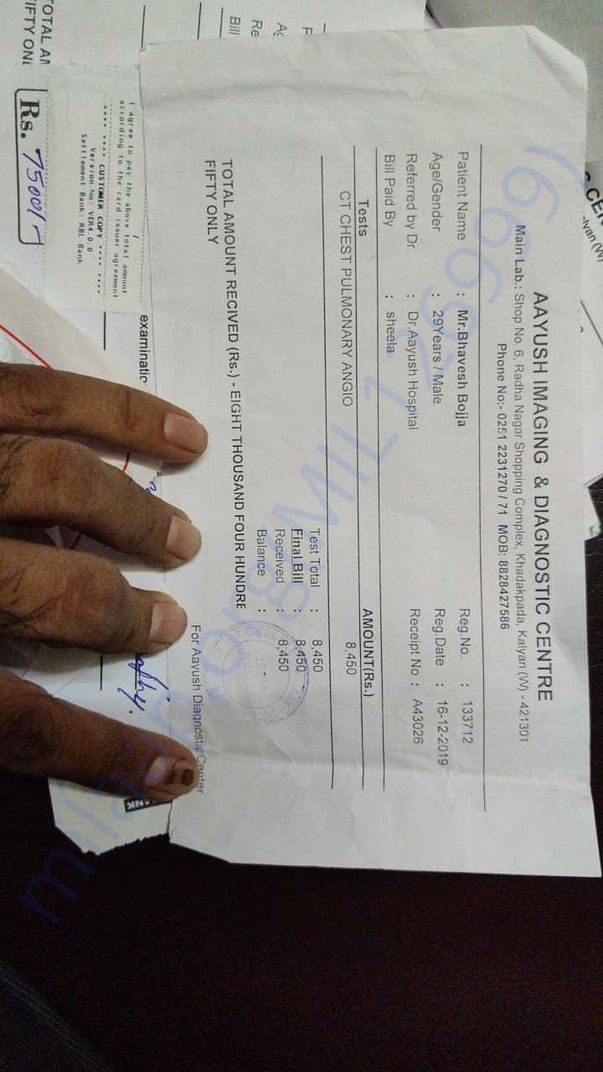 AAYUSH IMAGING & DIAGNOSTIC CENTRE
Main Lab.: Shop No. 6, Radha Nagar Shopping Complex, Khadakpada, Kalyan (W) - 421301
Phone No:- 0251 2231270 / 71 MOB: 8828427586
Patient Name : Mr.Bhavesh Bojja
Reg.No. : 133712
Age/Gender : 29Years / Male
Reg.Date : 16-12-2019
Referred by Dr. : Dr.Aayush Hospital
Receipt No : A43026
Bill Paid By : sheela
Tests AMOUNT(Rs.)
CT CHEST PULMONARY ANGIO 8,450
Test Total : 8,450
Final Bill : 8,450
Received : 8,450
Balance :
TOTAL AMOUNT RECIVED (Rs.) - EIGHT THOUSAND FOUR HUNDRE
FIFTY ONLY
For Aayush Diagnostic Center
I agree to pay the above total amount
according to the card issuer agreement
**** **** CUSTOMER COPY **** ****
Version No: VER4.0.0
Settlement Bank: RBL Bank
examinatio
TOTAL AM
FIFTY ONL
Rs. 7500/-
Re
Bill